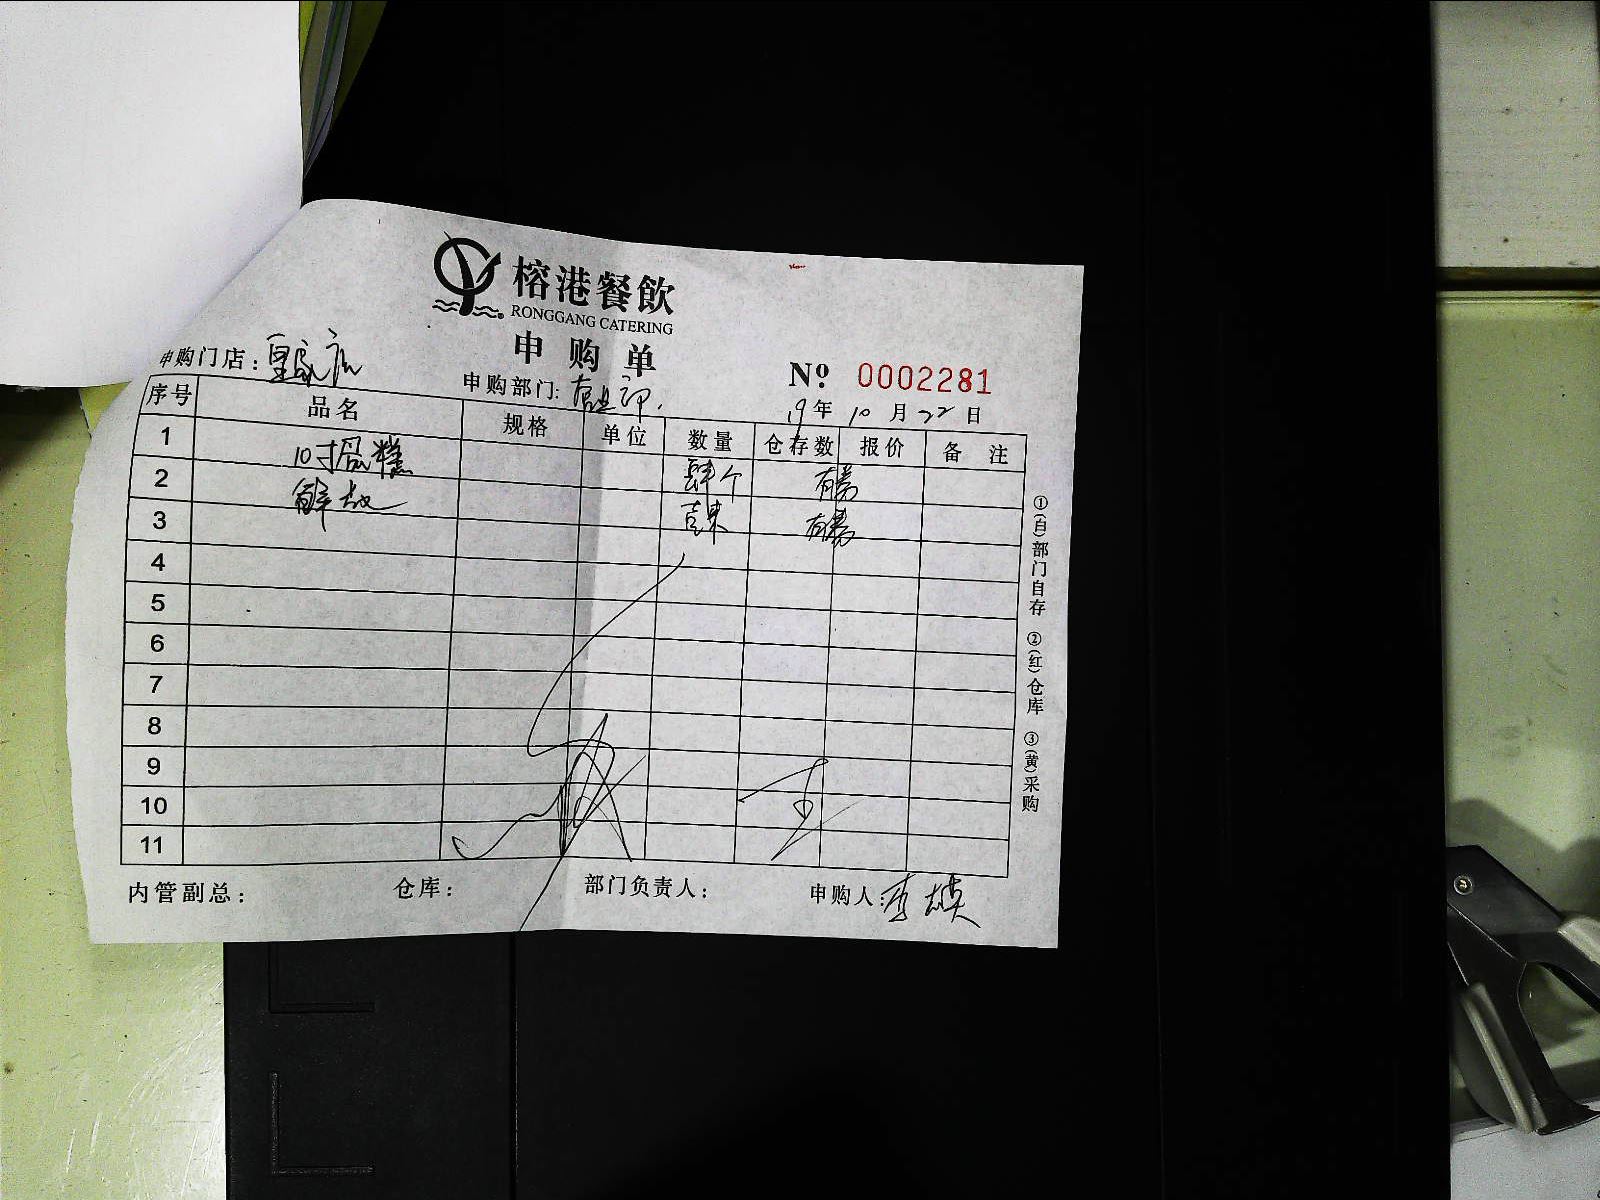 榕港餐飲
RONGGANG CATERING
申购单
申购门店：皇家店
申购部门：营业部
Nº 0002281
19年10月22日
序号 品名 规格 单位 数量 仓存数 报价 备注
1 10寸蛋糕 肆个
2 鲜花 壹束
3
4
5
6
7
8
9
10
11
内管副总： 仓库： 部门负责人： 申购人：李
①(白)部门自存 ②(红)仓库 ③(黄)采购